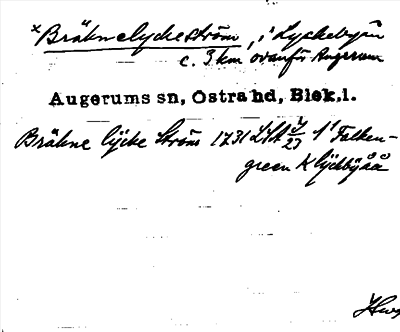 × Bräknelyckeström, i Lyckebyån
c. 3 km ovanför Augerum
Augerums sn, Östra hd, Blek. l.
Bräkne lÿcke Ström 1731 LSA 7/23 1¹ Falken-
green K lÿckbÿåå